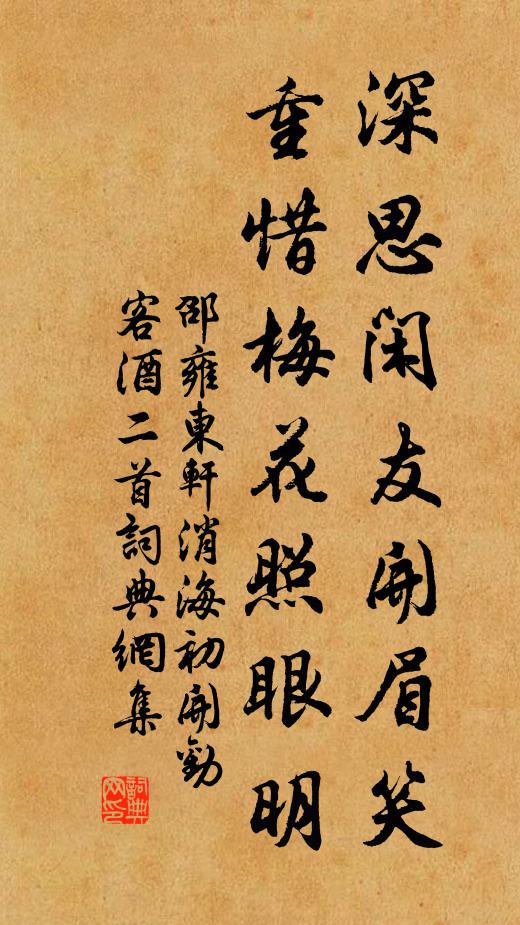 深思閑友開眉笑
重惜梅花照眼明
邵雍東軒消海初開勸
客酒二首詞典網集
詞典网印